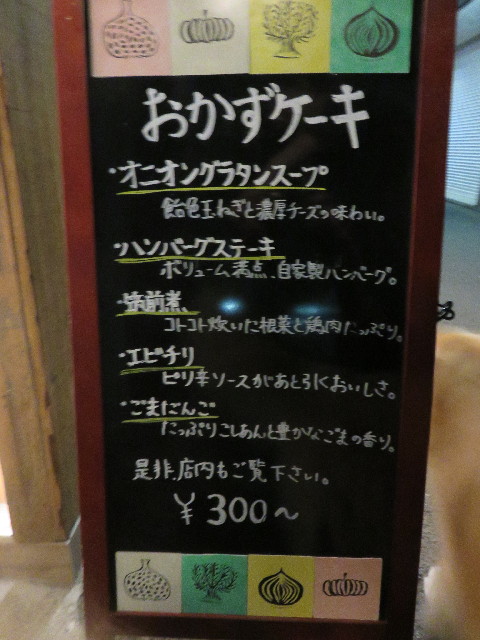 おかずケーキ
・オニオングラタンスープ
飴色玉ねぎと濃厚チーズの味わい。
・ハンバーグステーキ
ボリューム満点、自家製ハンバーグ。
・筑前煮
コトコト炊いた根菜と鶏肉たっぷり。
・エビチリ
ピリ辛ソースがあと引くおいしさ。
・ごまだんご
たっぷりこしあんと豊かなごまの香り。
是非、店内もご覧下さい。
¥300～